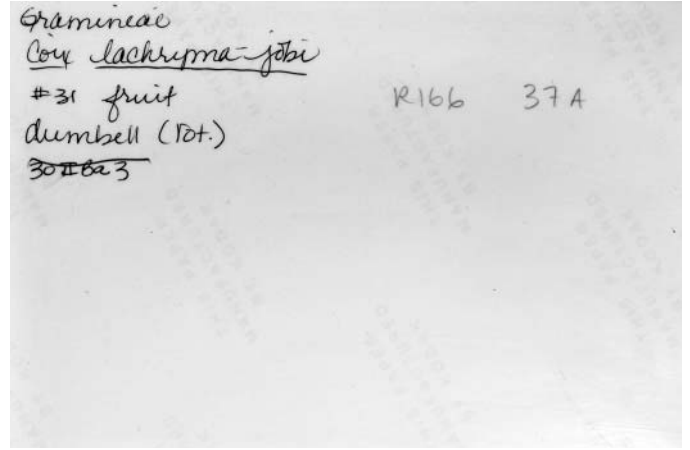 Gramineae
Coix lachryma-jobi
#31 fruit R166 37A
dumbell (rot.)